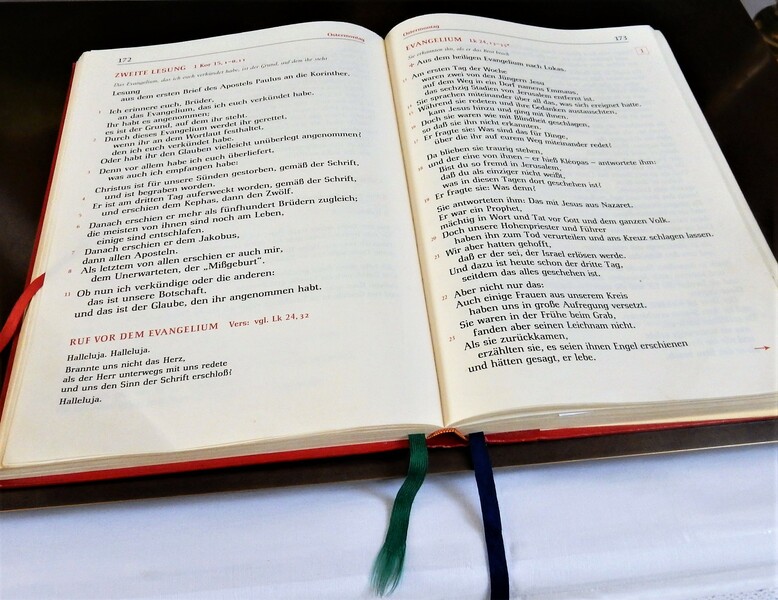 172
Ostermontag
ZWEITE LESUNG 1 Kor 15, 1–8.11
Das Evangelium, das ich euch verkündet habe, ist der Grund, auf dem ihr steht
Lesung
aus dem ersten Brief des Apostels Paulus an die Korinther.
1 Ich erinnere euch, Brüder,
an das Evangelium, das ich euch verkündet habe.
Ihr habt es angenommen;
es ist der Grund, auf dem ihr steht.
2 Durch dieses Evangelium werdet ihr gerettet,
wenn ihr an dem Wortlaut festhaltet,
den ich euch verkündet habe.
Oder habt ihr den Glauben vielleicht unüberlegt angenommen?
3 Denn vor allem habe ich euch überliefert,
was auch ich empfangen habe:
Christus ist für unsere Sünden gestorben, gemäß der Schrift,
4 und ist begraben worden.
Er ist am dritten Tag auferweckt worden, gemäß der Schrift,
5 und erschien dem Kephas, dann den Zwölf.
6 Danach erschien er mehr als fünfhundert Brüdern zugleich;
die meisten von ihnen sind noch am Leben,
einige sind entschlafen.
7 Danach erschien er dem Jakobus,
dann allen Aposteln.
8 Als letztem von allen erschien er auch mir,
dem Unerwarteten, der „Mißgeburt“.
11 Ob nun ich verkündige oder die anderen:
das ist unsere Botschaft,
und das ist der Glaube, den ihr angenommen habt.
RUF VOR DEM EVANGELIUM Vers: vgl. Lk 24, 32
Halleluja. Halleluja.
Brannte uns nicht das Herz,
als der Herr unterwegs mit uns redete
und uns den Sinn der Schrift erschloß?
Halleluja.
Ostermontag
173
EVANGELIUM Lk 24, 13–35
Sie erkannten ihn, als er das Brot brach
+ Aus dem heiligen Evangelium nach Lukas.
13 Am ersten Tag der Woche
waren zwei von den Jüngern Jesu
auf dem Weg in ein Dorf namens Emmaus,
das sechzig Stadien von Jerusalem entfernt ist.
14 Sie sprachen miteinander über all das, was sich ereignet hatte.
15 Während sie redeten und ihre Gedanken austauschten,
kam Jesus hinzu und ging mit ihnen.
16 Doch sie waren wie mit Blindheit geschlagen,
so daß sie ihn nicht erkannten.
17 Er fragte sie: Was sind das für Dinge,
über die ihr auf eurem Weg miteinander redet?
Da blieben sie traurig stehen,
18 und der eine von ihnen – er hieß Kléopas – antwortete ihm:
Bist du so fremd in Jerusalem,
daß du als einziger nicht weißt,
was in diesen Tagen dort geschehen ist?
19 Er fragte sie: Was denn?
Sie antworteten ihm: Das mit Jesus aus Nazaret.
Er war ein Prophet,
mächtig in Wort und Tat vor Gott und dem ganzen Volk.
20 Doch unsere Hohenpriester und Führer
haben ihn zum Tod verurteilen und ans Kreuz schlagen lassen.
21 Wir aber hatten gehofft,
daß er der sei, der Israel erlösen werde.
Und dazu ist heute schon der dritte Tag,
seitdem das alles geschehen ist.
22 Aber nicht nur das:
Auch einige Frauen aus unserem Kreis
haben uns in große Aufregung versetzt.
Sie waren in der Frühe beim Grab,
23 fanden aber seinen Leichnam nicht.
Als sie zurückkamen,
erzählten sie, es seien ihnen Engel erschienen
und hätten gesagt, er lebe.